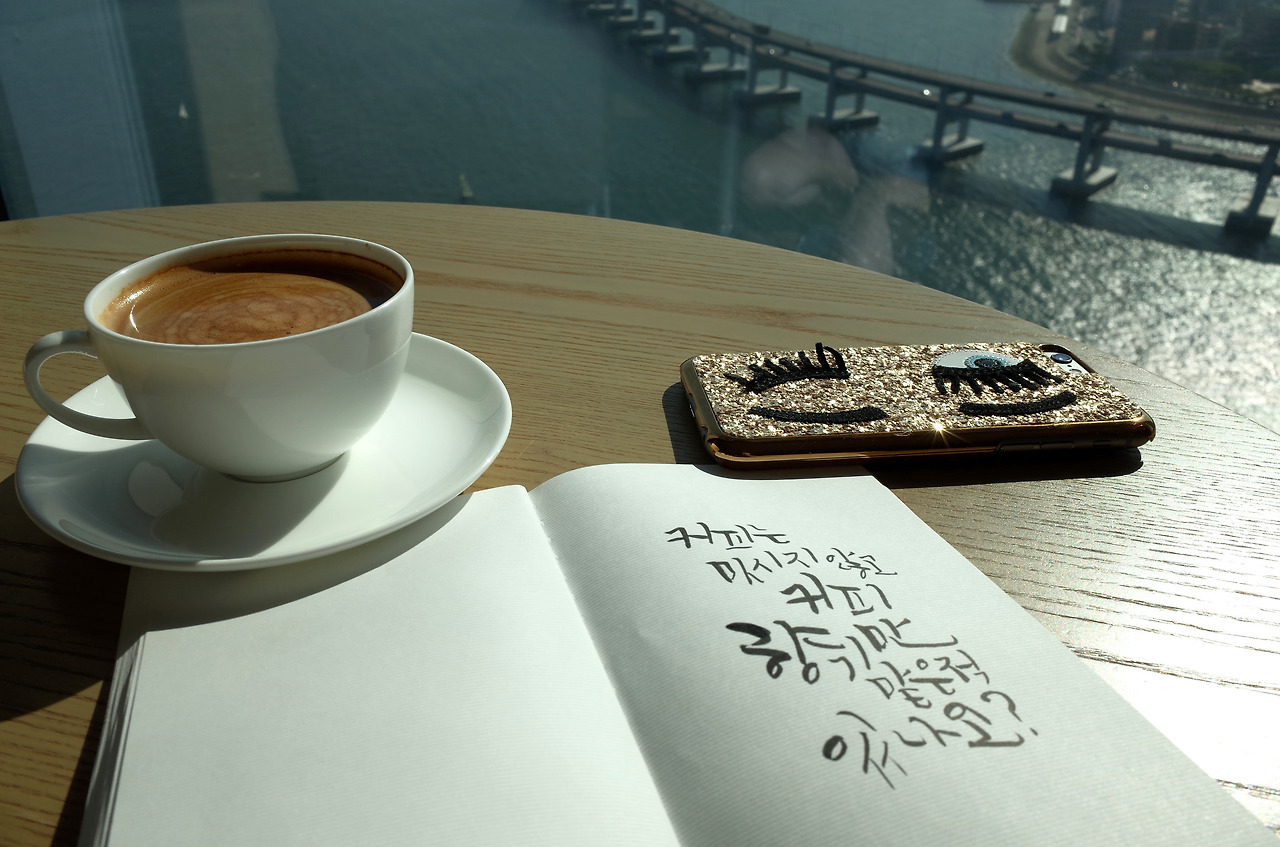 커피는
마시지 않고
커피
향기만
맡은적
있나요?